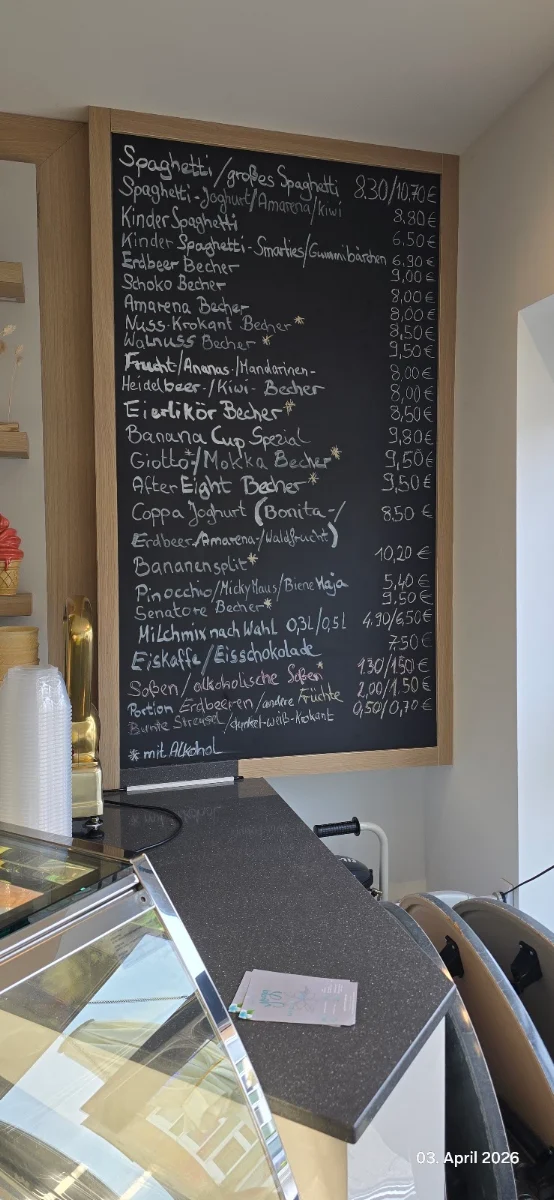 Spaghetti/großes Spaghetti 8,30/10,70€
Spaghetti-Joghurt/Amarena/Kiwi 8,80€
Kinder Spaghetti 6,50€
Kinder Spaghetti-Smarties/Gummibärchen 6,90€
Erdbeer Becher 9,00€
Schoko Becher 8,00€
Amarena Becher 8,00€
Nuss-Krokant Becher* 8,50€
Walnuss Becher* 9,50€
Frucht-/Ananas-/Mandarinen- 8,00€
Heidelbeer-/Kiwi- Becher 8,00€
Eierlikör Becher* 8,50€
Banana Cup Spezial 9,80€
Giotto*/Mokka Becher* 9,50€
After Eight Becher* 9,50€
Coppa Joghurt (Bonita-/ 8,50€
Erdbeer/Amarena-/Waldfrucht)
Bananensplit* 10,20€
Pinocchio/Micky Maus/Biene Maja 5,40€
Senatore Becher* 9,50€
Milchmix nach Wahl 0,3L/0,5L 4,90/6,50€
Eiskaffe/Eisschokolade 7,50€
Soßen/alkoholische Soßen* 1.30/1.50€
Portion Erdbeeren/andere Früchte 2,00/1.50€
Bunte Streusel/dunkel-weiß-Krokant 0,50/0,70€
* mit Alkohol
03. April 2026